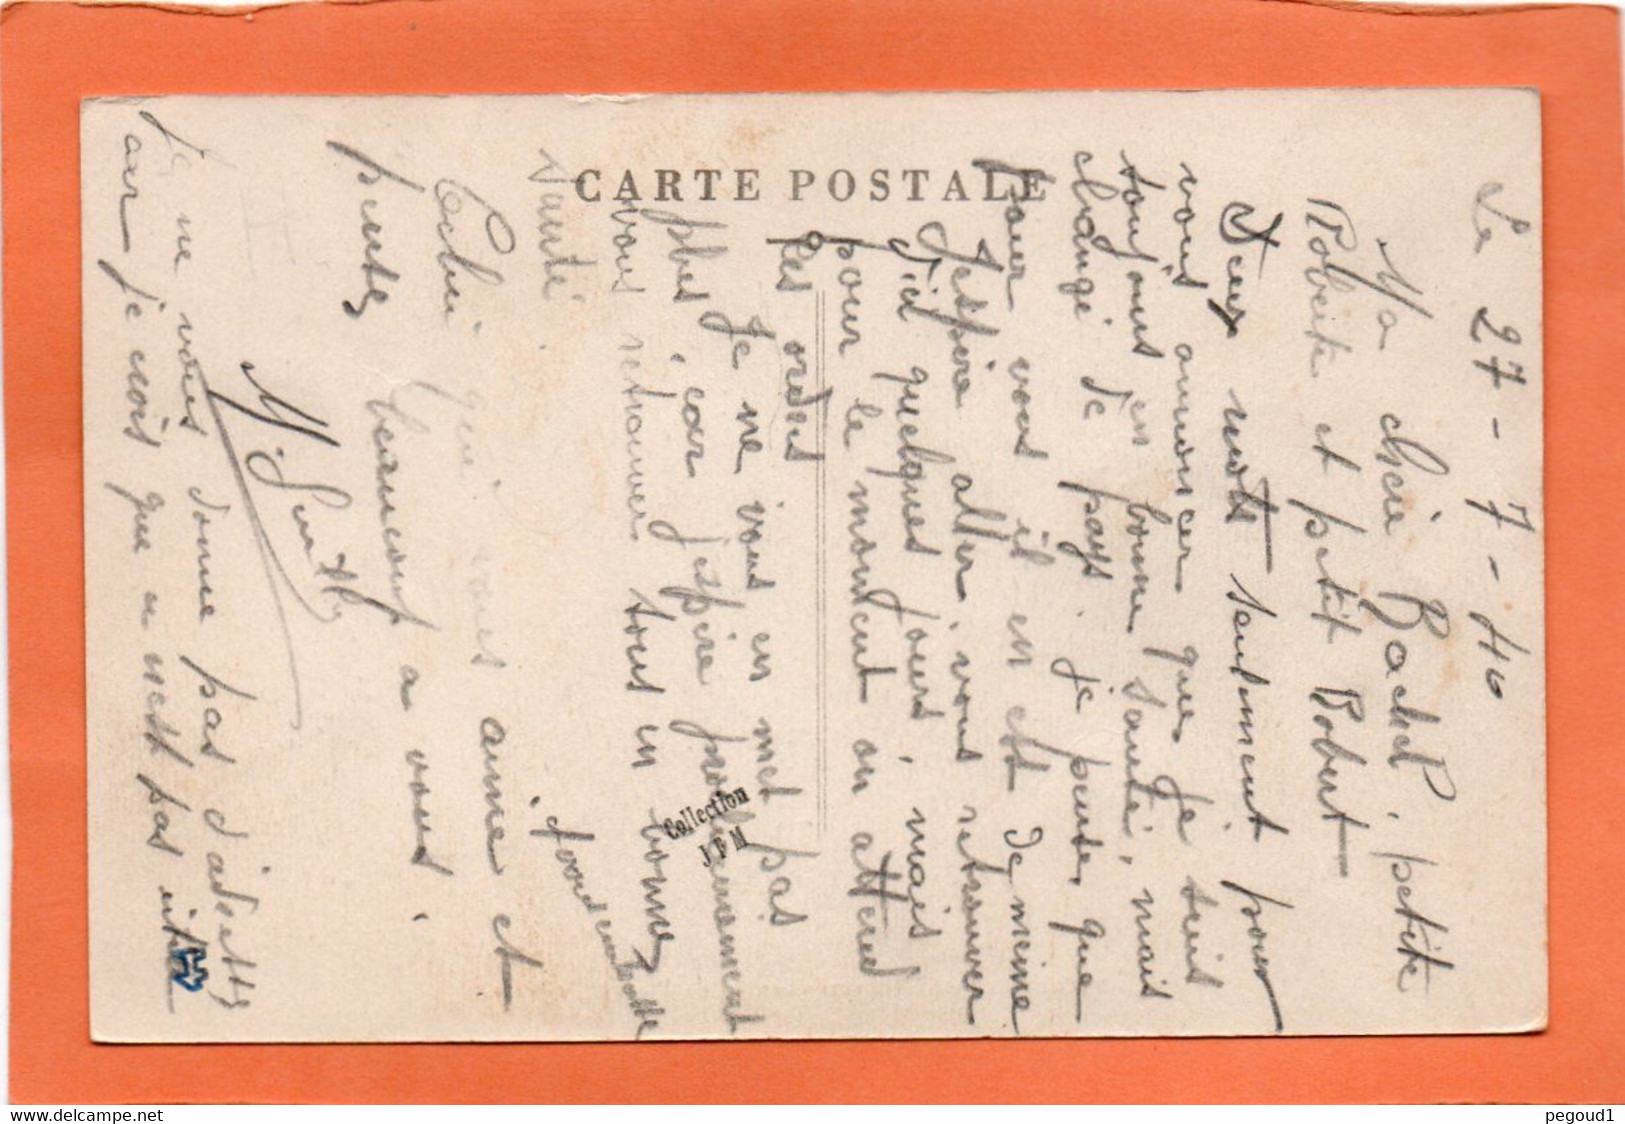 Le 27-7-40
Ma chère Rachel, petite
Roberte et petit Robert
Deux mots seulement pour
vous annoncer que je suis
toujours en bonne santé, mais
changé de pays. je pense, que
pour vous il en est de meme
Jespère aller, vous retrouver
d'ici quelques jours, mais
pour le moment on attend
les ordres
Je ne vous en met pas
plus, car jespère prochainement
vous retrouver tous en bonne
santé
Celui qui vous aime et
pense beaucoup a vous.
Je ne vous donne pas d'adresse
car je crois que ce nest pas
CARTE POSTALE
Collection
JFM
delcampe.net
pegoud1